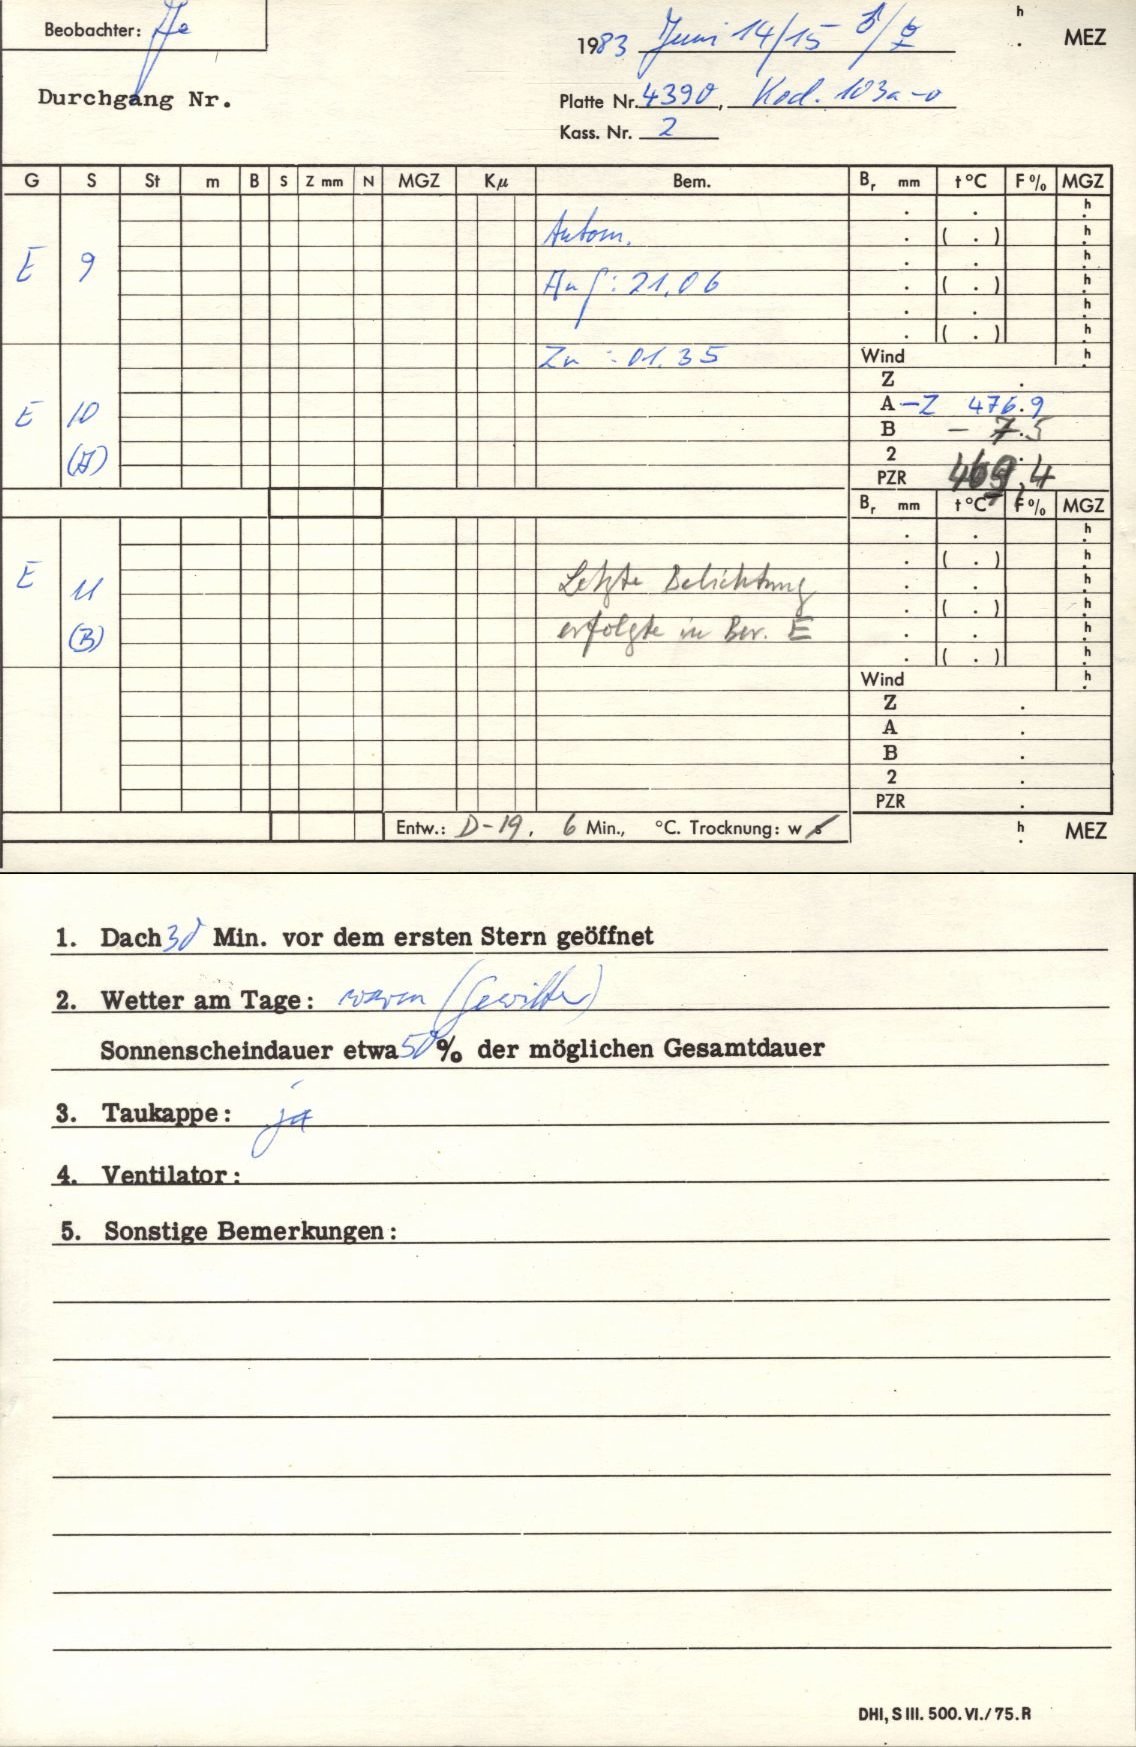 Beobachter: Je
1983 Juni 14/15 ♂/☿ h . MEZ
Durchgang Nr.
Platte Nr. 4390, Kod. 103a-o
Kass. Nr. 2
G S St m B S Z mm N MGZ Kμ Bem. Br mm t °C F % MGZ
Autom.
E 9
Anf: 21.06
Zu : 01.35
Wind
Z .
E 10 A -Z 476.9
B - 7.5
(A) 2 .
PZR 469.4
Br mm t °C F % MGZ
E 11 Letzte Belichtung
(B) erfolgte in Ber. E
Wind
Z .
A .
B .
2 .
PZR .
Entw.: D-19, 6 Min., °C. Trocknung: w s h . MEZ
1. Dach 30 Min. vor dem ersten Stern geöffnet
2. Wetter am Tage: warm (Gewitter)
Sonnenscheindauer etwa 50 % der möglichen Gesamtdauer
3. Taukappe: ja
4. Ventilator:
5. Sonstige Bemerkungen:
DHI, S III. 500. VI./75. R